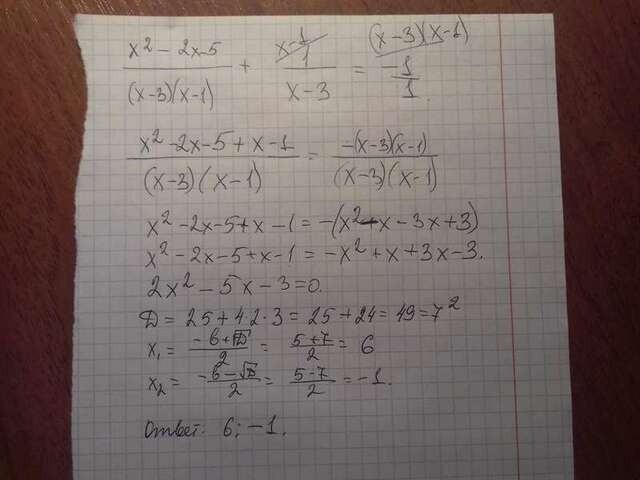 x² - 2x-5 / (x-3)(x-1) + x-1 / x-3 = -1/1 (x-3)(x-1)
x²-2x-5+x-1 / (x-3)(x-1) = -(x-3)(x-1) / (x-3)(x-1)
x²-2x-5+x-1 = -(x²-x-3x+3)
x²-2x-5+x-1 = -x²+x+3x-3.
2x²-5x-3=0.
D = 25+42·3 = 25+24 = 49 = 7²
x₁ = -b+√D / 2 = 5+7 / 2 = 6
x₂ = -b-√D / 2 = 5-7 / 2 = -1.
Ответ: 6; -1.